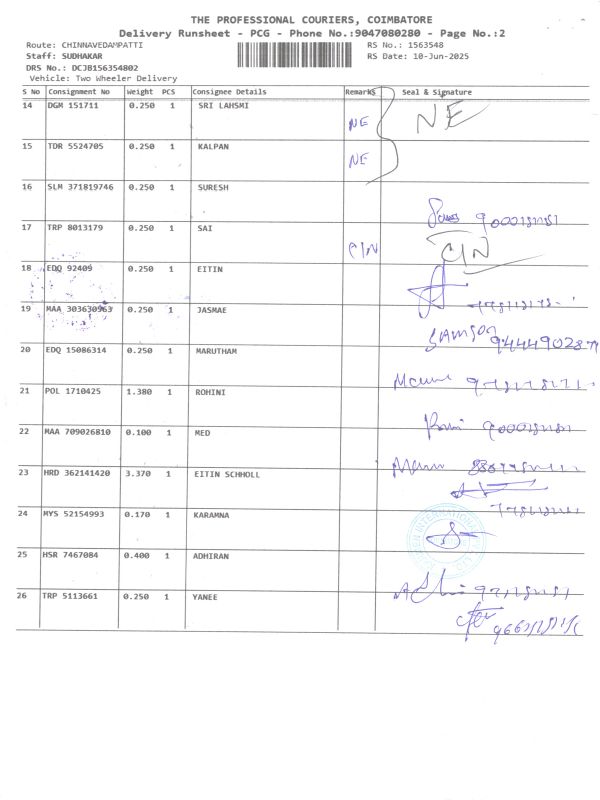 THE PROFESSIONAL COURIERS, COIMBATORE
Delivery Runsheet - PCG - Phone No.:9047080280 - Page No.:2
Route: CHINNAVEDAMPATTI RS No.: 1563548
Staff: SUDHAKAR RS Date: 10-Jun-2025
DRS No.: DCJB156354802
Vehicle: Two Wheeler Delivery
S No Consignment No Weight PCS Consignee Details Remarks Seal & Signature
14 DGM 151711 0.250 1 SRI LAHSMI NE NE
15 TDR 5524705 0.250 1 KALPAN NE
16 SLM 371819746 0.250 1 SURESH
17 TRP 8013179 0.250 1 SAI CIN CIN
18 EDQ 92409 0.250 1 EITIN
19 MAA 303630963 0.250 1 JASMAE
20 EDQ 15086314 0.250 1 MARUTHAM
21 POL 1710425 1.380 1 ROHINI
22 MAA 709026810 0.100 1 MED
23 HRD 362141420 3.370 1 EITIN SCHHOLL
24 MYS 52154993 0.170 1 KARAMNA
25 HSR 7467084 0.400 1 ADHIRAN
26 TRP 5113661 0.250 1 YANEE